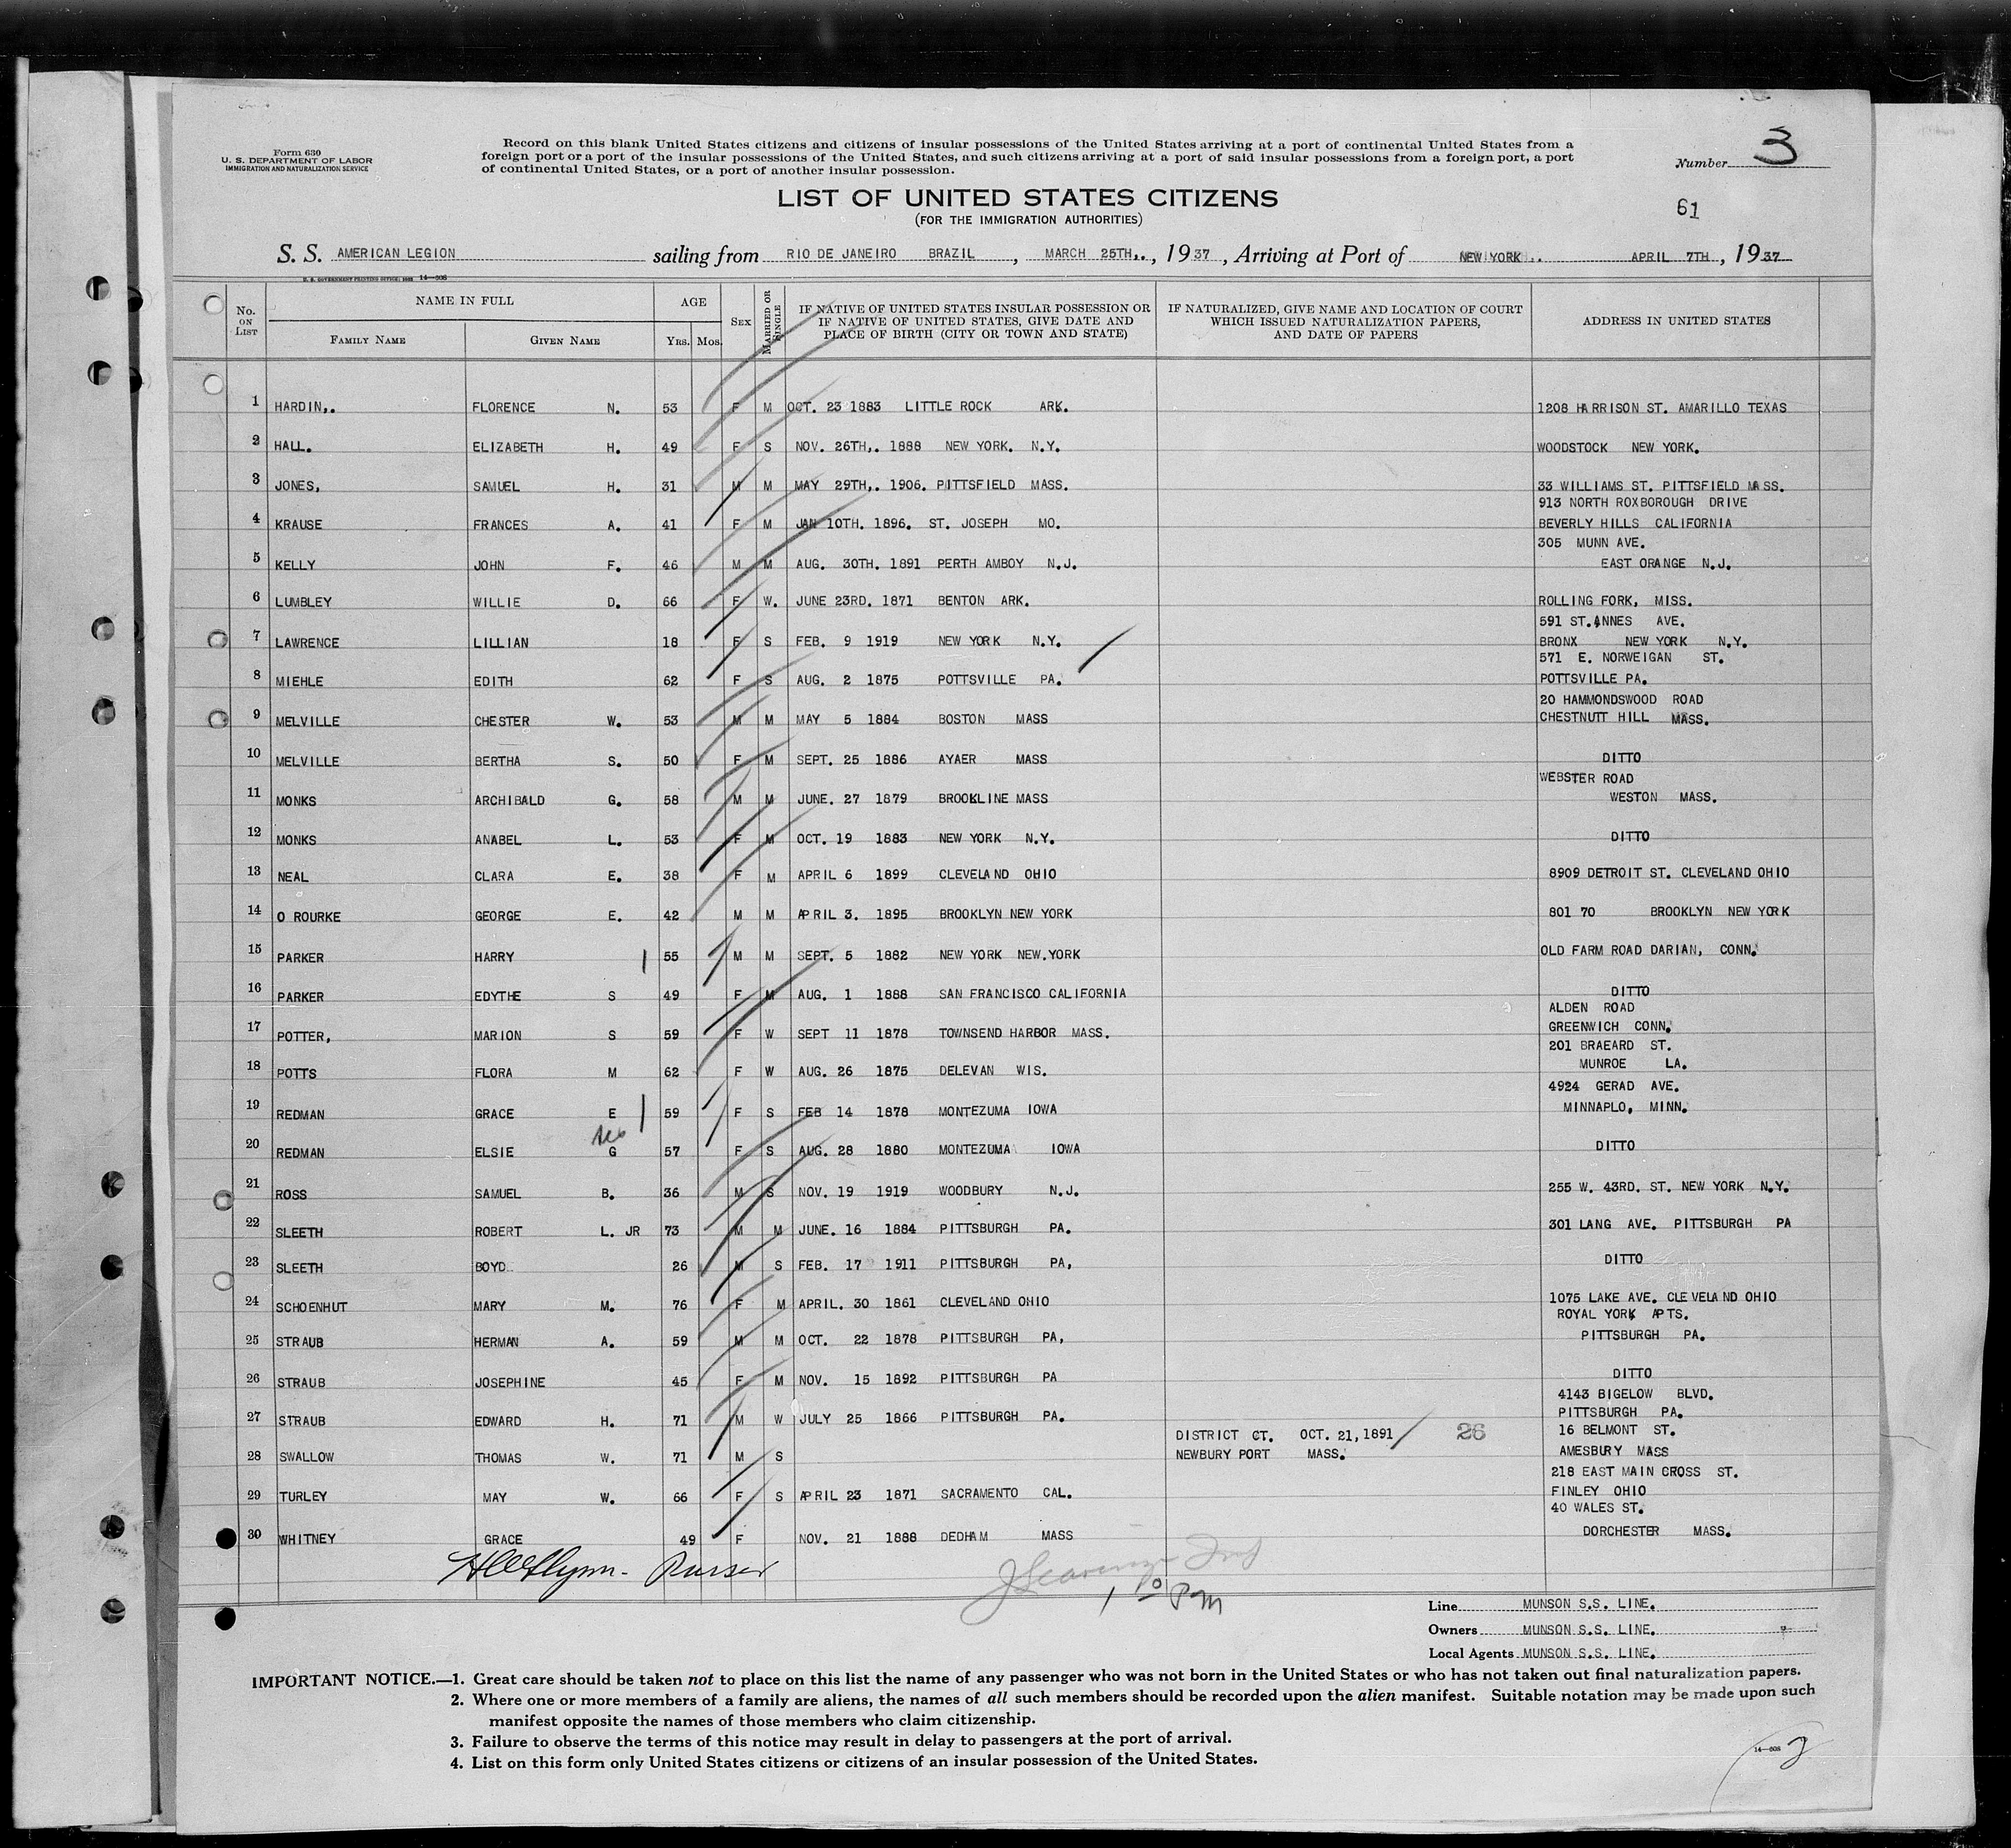 Form 630
U. S. DEPARTMENT OF LABOR
IMMIGRATION AND NATURALIZATION SERVICE
Record on this blank United States citizens and citizens of insular possessions of the United States arriving at a port of continental United States from a
foreign port or a port of the insular possessions of the United States, and such citizens arriving at a port of said insular possessions from a foreign port, a port
of continental United States, or a port of another insular possession.
Number 3
LIST OF UNITED STATES CITIZENS
(FOR THE IMMIGRATION AUTHORITIES)
61
S. S. AMERICAN LEGION sailing from RIO DE JANEIRO BRAZIL, MARCH 25TH,., 1937, Arriving at Port of NEW YORK.. APRIL 7TH, 1937
U. S. GOVERNMENT PRINTING OFFICE: 14—508
No. ON LIST
NAME IN FULL
FAMILY NAME GIVEN NAME
AGE
YRS. MOS.
SEX
MARRIED OR SINGLE
IF NATIVE OF UNITED STATES INSULAR POSSESSION OR
IF NATIVE OF UNITED STATES, GIVE DATE AND
PLACE OF BIRTH (CITY OR TOWN AND STATE)
IF NATURALIZED, GIVE NAME AND LOCATION OF COURT
WHICH ISSUED NATURALIZATION PAPERS,
AND DATE OF PAPERS
ADDRESS IN UNITED STATES
1 HARDIN,. FLORENCE N. 53 F M OCT. 23 1883 LITTLE ROCK ARK. 1208 HARRISON ST. AMARILLO TEXAS
2 HALL. ELIZABETH H. 49 F S NOV. 26TH,. 1888 NEW YORK. N.Y. WOODSTOCK NEW YORK.
3 JONES, SAMUEL H. 31 M M MAY 29TH,. 1906. PITTSFIELD MASS. 33 WILLIAMS ST. PITTSFIELD MASS.
913 NORTH ROXBOROUGH DRIVE
4 KRAUSE FRANCES A. 41 F M JAN 10TH. 1896. ST. JOSEPH MO. BEVERLY HILLS CALIFORNIA
305 MUNN AVE.
5 KELLY JOHN F. 46 M M AUG. 30TH. 1891 PERTH AMBOY N.J. EAST ORANGE N.J.
6 LUMBLEY WILLIE D. 66 F W. JUNE 23RD. 1871 BENTON ARK. ROLLING FORK, MISS.
591 ST.ANNES AVE.
7 LAWRENCE LILLIAN 18 F S FEB. 9 1919 NEW YORK N.Y. BRONX NEW YORK N.Y.
571 E. NORWEIGAN ST.
8 MIEHLE EDITH 62 F S AUG. 2 1875 POTTSVILLE PA. POTTSVILLE PA.
20 HAMMONDSWOOD ROAD
9 MELVILLE CHESTER W. 53 M M MAY 5 1884 BOSTON MASS CHESTNUTT HILL MASS.
10 MELVILLE BERTHA S. 50 F M SEPT. 25 1886 AYAER MASS DITTO
WEBSTER ROAD
11 MONKS ARCHIBALD G. 58 M M JUNE. 27 1879 BROOKLINE MASS WESTON MASS.
12 MONKS ANABEL L. 53 F M OCT. 19 1883 NEW YORK N.Y. DITTO
13 NEAL CLARA E. 38 F M APRIL 6 1899 CLEVELAND OHIO 8909 DETROIT ST. CLEVELAND OHIO
14 O ROURKE GEORGE E. 42 M M APRIL 3. 1895 BROOKLYN NEW YORK 801 70 BROOKLYN NEW YORK
15 PARKER HARRY 55 M M SEPT. 5 1882 NEW YORK NEW.YORK OLD FARM ROAD DARIAN, CONN.
16 PARKER EDYTHE S 49 F M AUG. 1 1888 SAN FRANCISCO CALIFORNIA DITTO
ALDEN ROAD
17 POTTER, MARION S 59 F W SEPT 11 1878 TOWNSEND HARBOR MASS. GREENWICH CONN.
201 BRAEARD ST.
18 POTTS FLORA M 62 F W AUG. 26 1875 DELEVAN WIS. MUNROE LA.
4924 GERAD AVE.
19 REDMAN GRACE E 59 F S FEB 14 1878 MONTEZUMA IOWA MINNAPLO, MINN.
20 REDMAN ELSIE G 57 F S AUG. 28 1880 MONTEZUMA IOWA DITTO
21 ROSS SAMUEL B. 36 M S NOV. 19 1919 WOODBURY N.J. 255 W. 43RD. ST. NEW YORK N.Y.
22 SLEETH ROBERT L. JR 73 M M JUNE. 16 1884 PITTSBURGH PA. 301 LANG AVE. PITTSBURGH PA
23 SLEETH BOYD 26 M S FEB. 17 1911 PITTSBURGH PA, DITTO
24 SCHOENHUT MARY M. 76 F M APRIL. 30 1861 CLEVELAND OHIO 1075 LAKE AVE. CLEVELAND OHIO
ROYAL YORK APTS.
25 STRAUB HERMAN A. 59 M M OCT. 22 1878 PITTSBURGH PA, PITTSBURGH PA.
26 STRAUB JOSEPHINE 45 F M NOV. 15 1892 PITTSBURGH PA DITTO
4143 BIGELOW BLVD.
27 STRAUB EDWARD H. 71 M W JULY 25 1866 PITTSBURGH PA. PITTSBURGH PA.
DISTRICT CT. OCT. 21,1891 26 16 BELMONT ST.
28 SWALLOW THOMAS W. 71 M S NEWBURY PORT MASS. AMESBURY MASS
218 EAST MAIN CROSS ST.
29 TURLEY MAY W. 66 F S APRIL 23 1871 SACRAMENTO CAL. FINLEY OHIO
40 WALES ST.
30 WHITNEY GRACE 49 F NOV. 21 1888 DEDHAM MASS DORCHESTER MASS.
Purser
1 10 PM
Line MUNSON S.S. LINE.
Owners MUNSON S.S. LINE.
Local Agents MUNSON S.S. LINE.
IMPORTANT NOTICE.—1. Great care should be taken not to place on this list the name of any passenger who was not born in the United States or who has not taken out final naturalization papers.
2. Where one or more members of a family are aliens, the names of all such members should be recorded upon the alien manifest. Suitable notation may be made upon such
manifest opposite the names of those members who claim citizenship.
3. Failure to observe the terms of this notice may result in delay to passengers at the port of arrival.
4. List on this form only United States citizens or citizens of an insular possession of the United States.
14—508
2